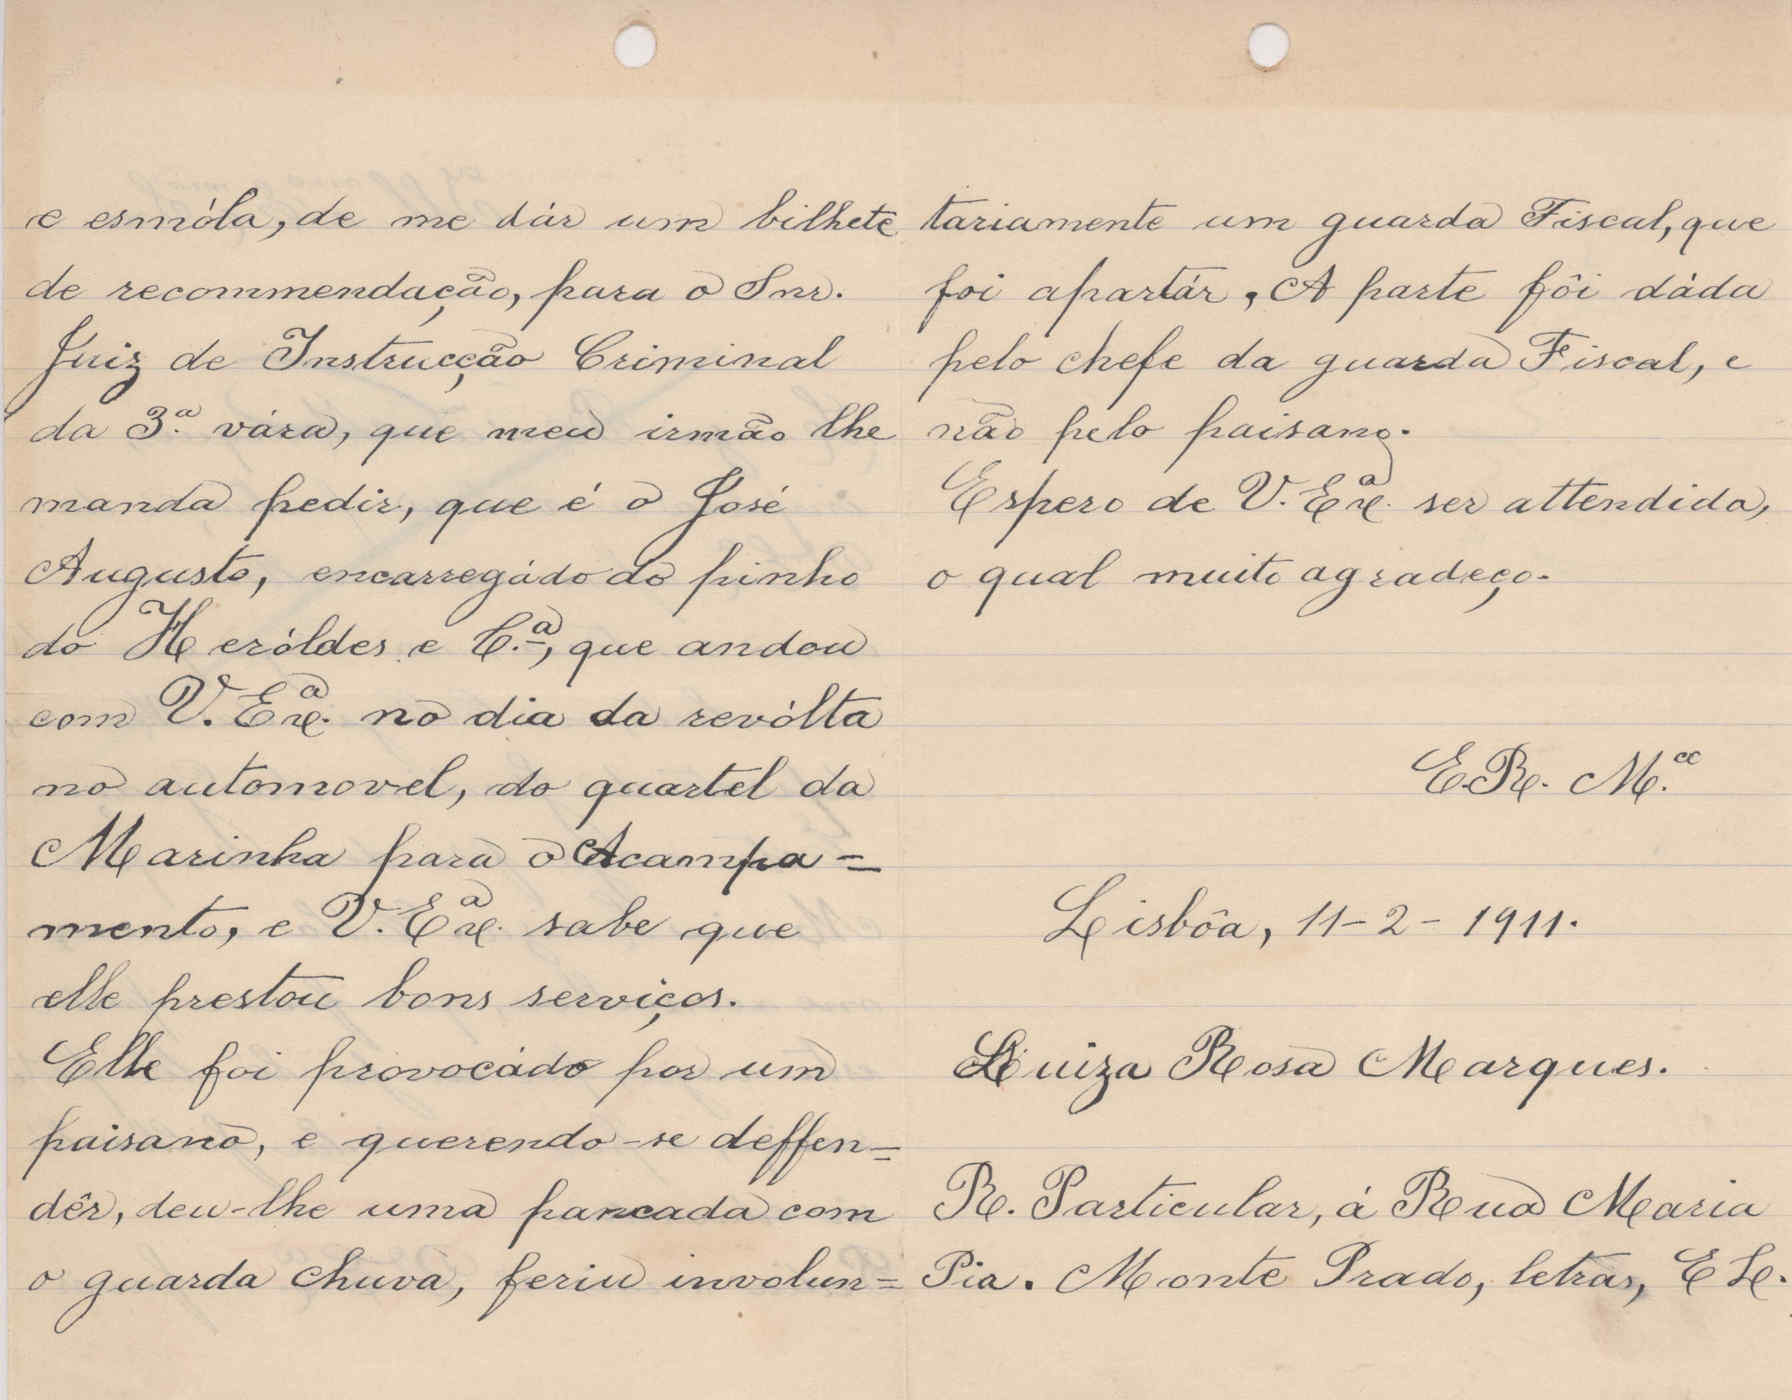 e esmóla, de me dár um bilhete
de recommendação, para o Snr.
Juiz de Instrucção Criminal
da 3.ª vára, que meu irmão lhe
manda pedir, que é o José
Augusto, encarregádo do pinho
do Heróldes e C.ª, que andou
com V. Exª. no dia da revólta
no automovel, do quartel da
Marinha para o Acampa=
mento, e V. Exª. sabe que
elle prestou bons serviços.
Elle foi provocádo por um
paisano, e querendo-se deffen=
dêr, deu-lhe uma pancada com
o guarda chuva, feriu involun=
tariamente um guarda Fiscal, que
foi apartár, A parte fôi dáda
pelo chefe da guarda Fiscal, e
não pelo paisano.
Espero de V. Exª. ser attendida,
o qual muito agradeço.
E.R. M.ce
Lisbôa, 11-2-1911.
Luiza Rosa Marques.
R. Particular, á Rua Maria
Pia. Monte Prado, letras, E L.